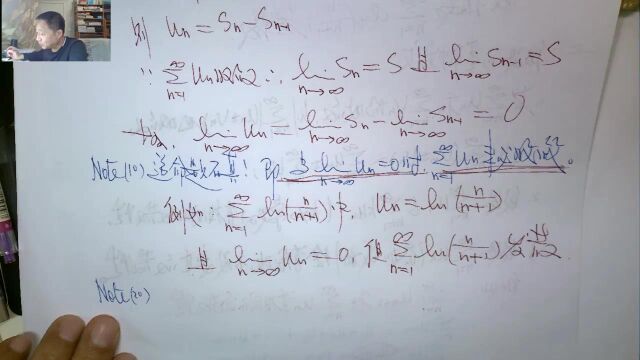 则 Un = Sn - Sn-1
∵ ∑_{n=1}^{∞} Un 收敛 ∴ lim_{n→∞} Sn = S 且 lim_{n→∞} Sn-1 = S
故, lim_{n→∞} Un = lim_{n→∞} Sn - lim_{n→∞} Sn-1 = 0
Note (1°) 逆命题不真! 即 当 lim_{n→∞} Un = 0 时 ∑_{n=1}^{∞} Un 未必收敛.
例如 ∑_{n=1}^{∞} ln(n/(n+1)) 中, Un = ln(n/(n+1))
且 lim_{n→∞} Un = 0, 但 ∑_{n=1}^{∞} ln(n/(n+1)) 发散
Note (2°)